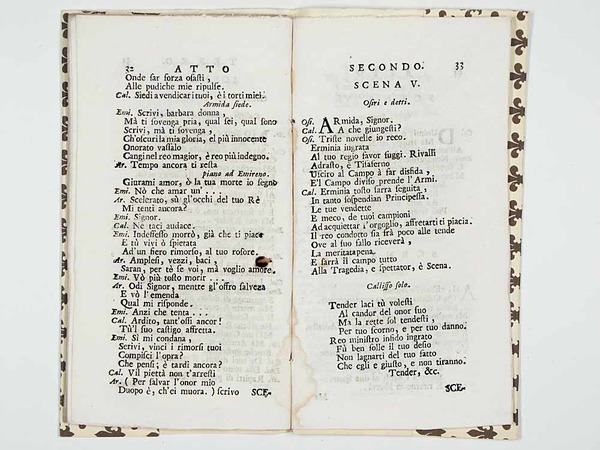 32 ATTO
Onde far forza osasti,
Alle pudiche mie ripulse.
Cal. Siedi a vendicar i tuoi, è i torti miei.
Armida siede.
Emi. Scrivi, barbara donna,
Mà ti sovenga pria, qual sei, qual sono
Scrivi, mà ti sovenga,
Ch'oscuri la mia gloria, el più innocente
Onorato vassalo
Cangi nel reo magior, è reo più indegno.
Ar. Tempo ancora ti resta
piano ad Emireno.
Giurami amor, ò la tua morte io segno
Emi. Nò che amar un' . . .
Ar. Scelerato, sù gl'occhi del tuo Rè
Mi tenti ancora?
Emi. Signor.
Cal. Ne taci audace.
Emi. Indefesso morrò, già che ti piace
E tù vivi ò spietata
Ad'un fiero rimorso, al tuo rosore.
Ar. Amplessi, vezzi, baci,
Saran, per tè se voi, mà voglio amore.
Emi. Vò più tosto morir . . .
Ar. Odi Signor, mentre gl'offro salveza
E vò l'emenda
Qual mi risponde.
Emi. Anzi che tenta . . .
Cal. Ardito, tant'osi ancor!
Tù'l suo castigo affretta.
Emi. Sì mi condana,
Scrivi, vinci i rimorsi tuoi
Compisci l'opra?
Che pensi; è tardi ancora?
Cal. Vil piettà non t'arresti
Ar. ( Per salvar l'onor mio
Duopo è, ch'ei muora. ) scrivo
SCE-
SECONDO. 33
SCENA V.
Osiri e detti.
Osi. ARmida, Signor.
Cal. A che giungesti?
Osi. Triste novelle io reco.
Erminia ingrata
Al tuo regio favor fuggi. Rivalli
Adrasto, è Tisaferno
Usciro al Campo à far disfida,
E'l Campo diviso prende l'Armi.
Cal. Erminia tosto sarra seguita,
In tanto sospendian Principessa.
Le tue vendette
E meco, de tuoi campioni
Ad acquiettar l'orgoglio, affretarti ti piacia.
Il reo condotto sia frà poco alle tende
Ove al suo fallo riceverà,
La meritata pena.
E farà il campo tutto
Alla Tragedia, e spettator, è Scena.
Calisso solo.
Tender laci tù volesti
Al candor del onor suo
Ma la rette sol tendesti,
Per tuo scorno, e per tuo danno.
Reo ministro infido ingrato
Fù ben folle il tuo desio
Non lagnarti del tuo fatto
Che egli e giusto, e non tiranno.
Tender, &c.
SCE-